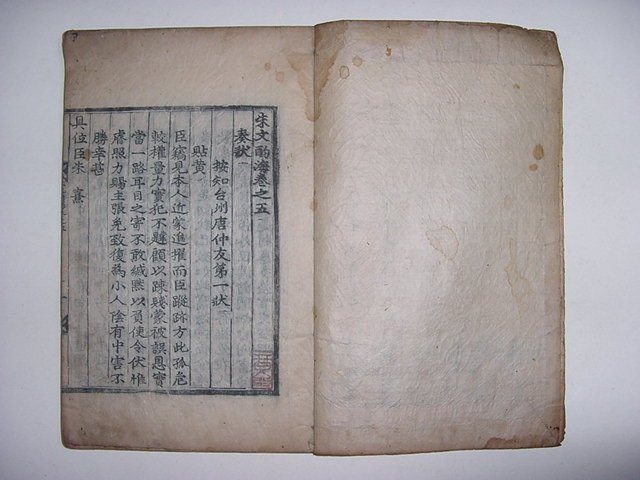 朱文酌海卷之五
奏狀
按知台州唐仲友第一狀
貼黃
臣竊見本人近蒙進擢而臣蹤跡方此孤危
較權量力實犯不韙顧以踈賤蒙被誤恩實
當一路耳目之寄不敢緘默以負使令伏惟
睿照力賜主張免致復爲小人陰有中害不
勝幸甚
具位臣朱熹